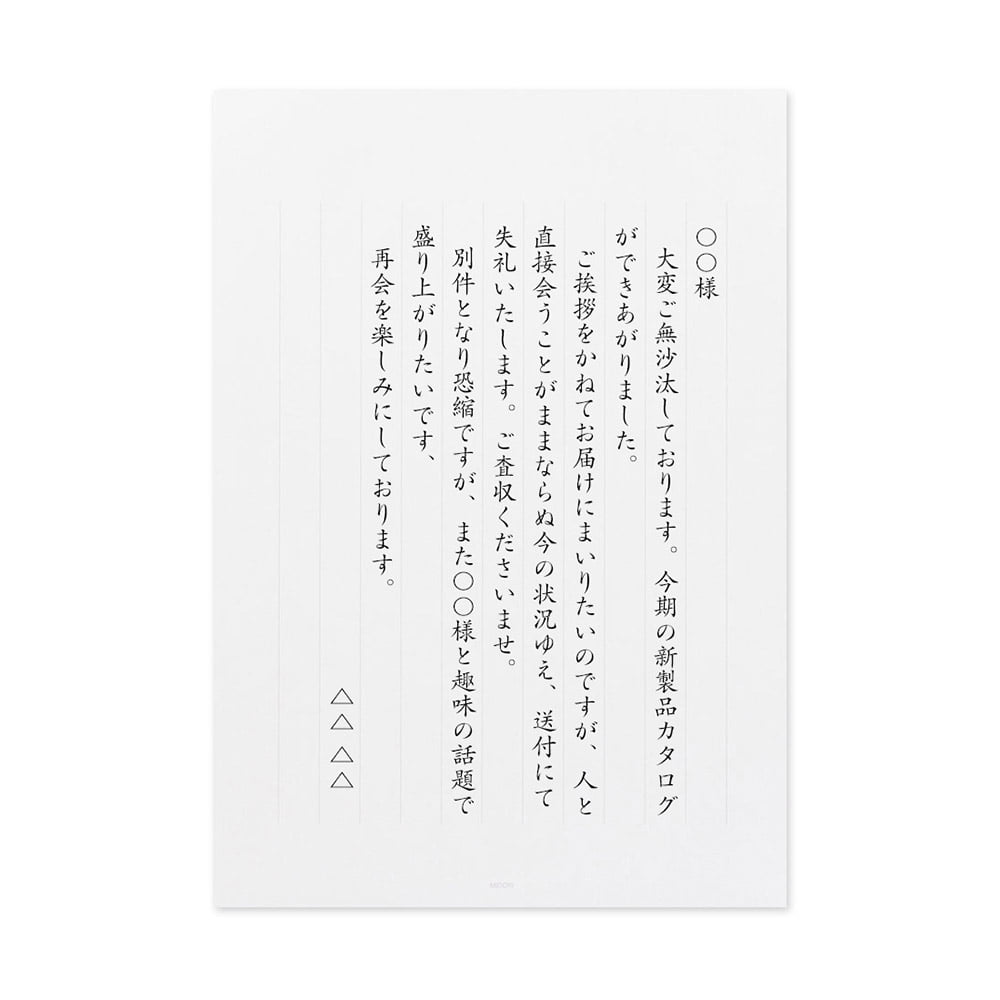 〇〇様
大変ご無沙汰しております。今期の新製品カタログ
ができあがりました。
ご挨拶をかねてお届けにまいりたいのですが、人と
直接会うことがままならぬ今の状況ゆえ、送付にて
失礼いたします。ご査収くださいませ。
別件となり恐縮ですが、また〇〇様と趣味の話題で
盛り上がりたいです、
再会を楽しみにしております。
△△△△
MIDORI